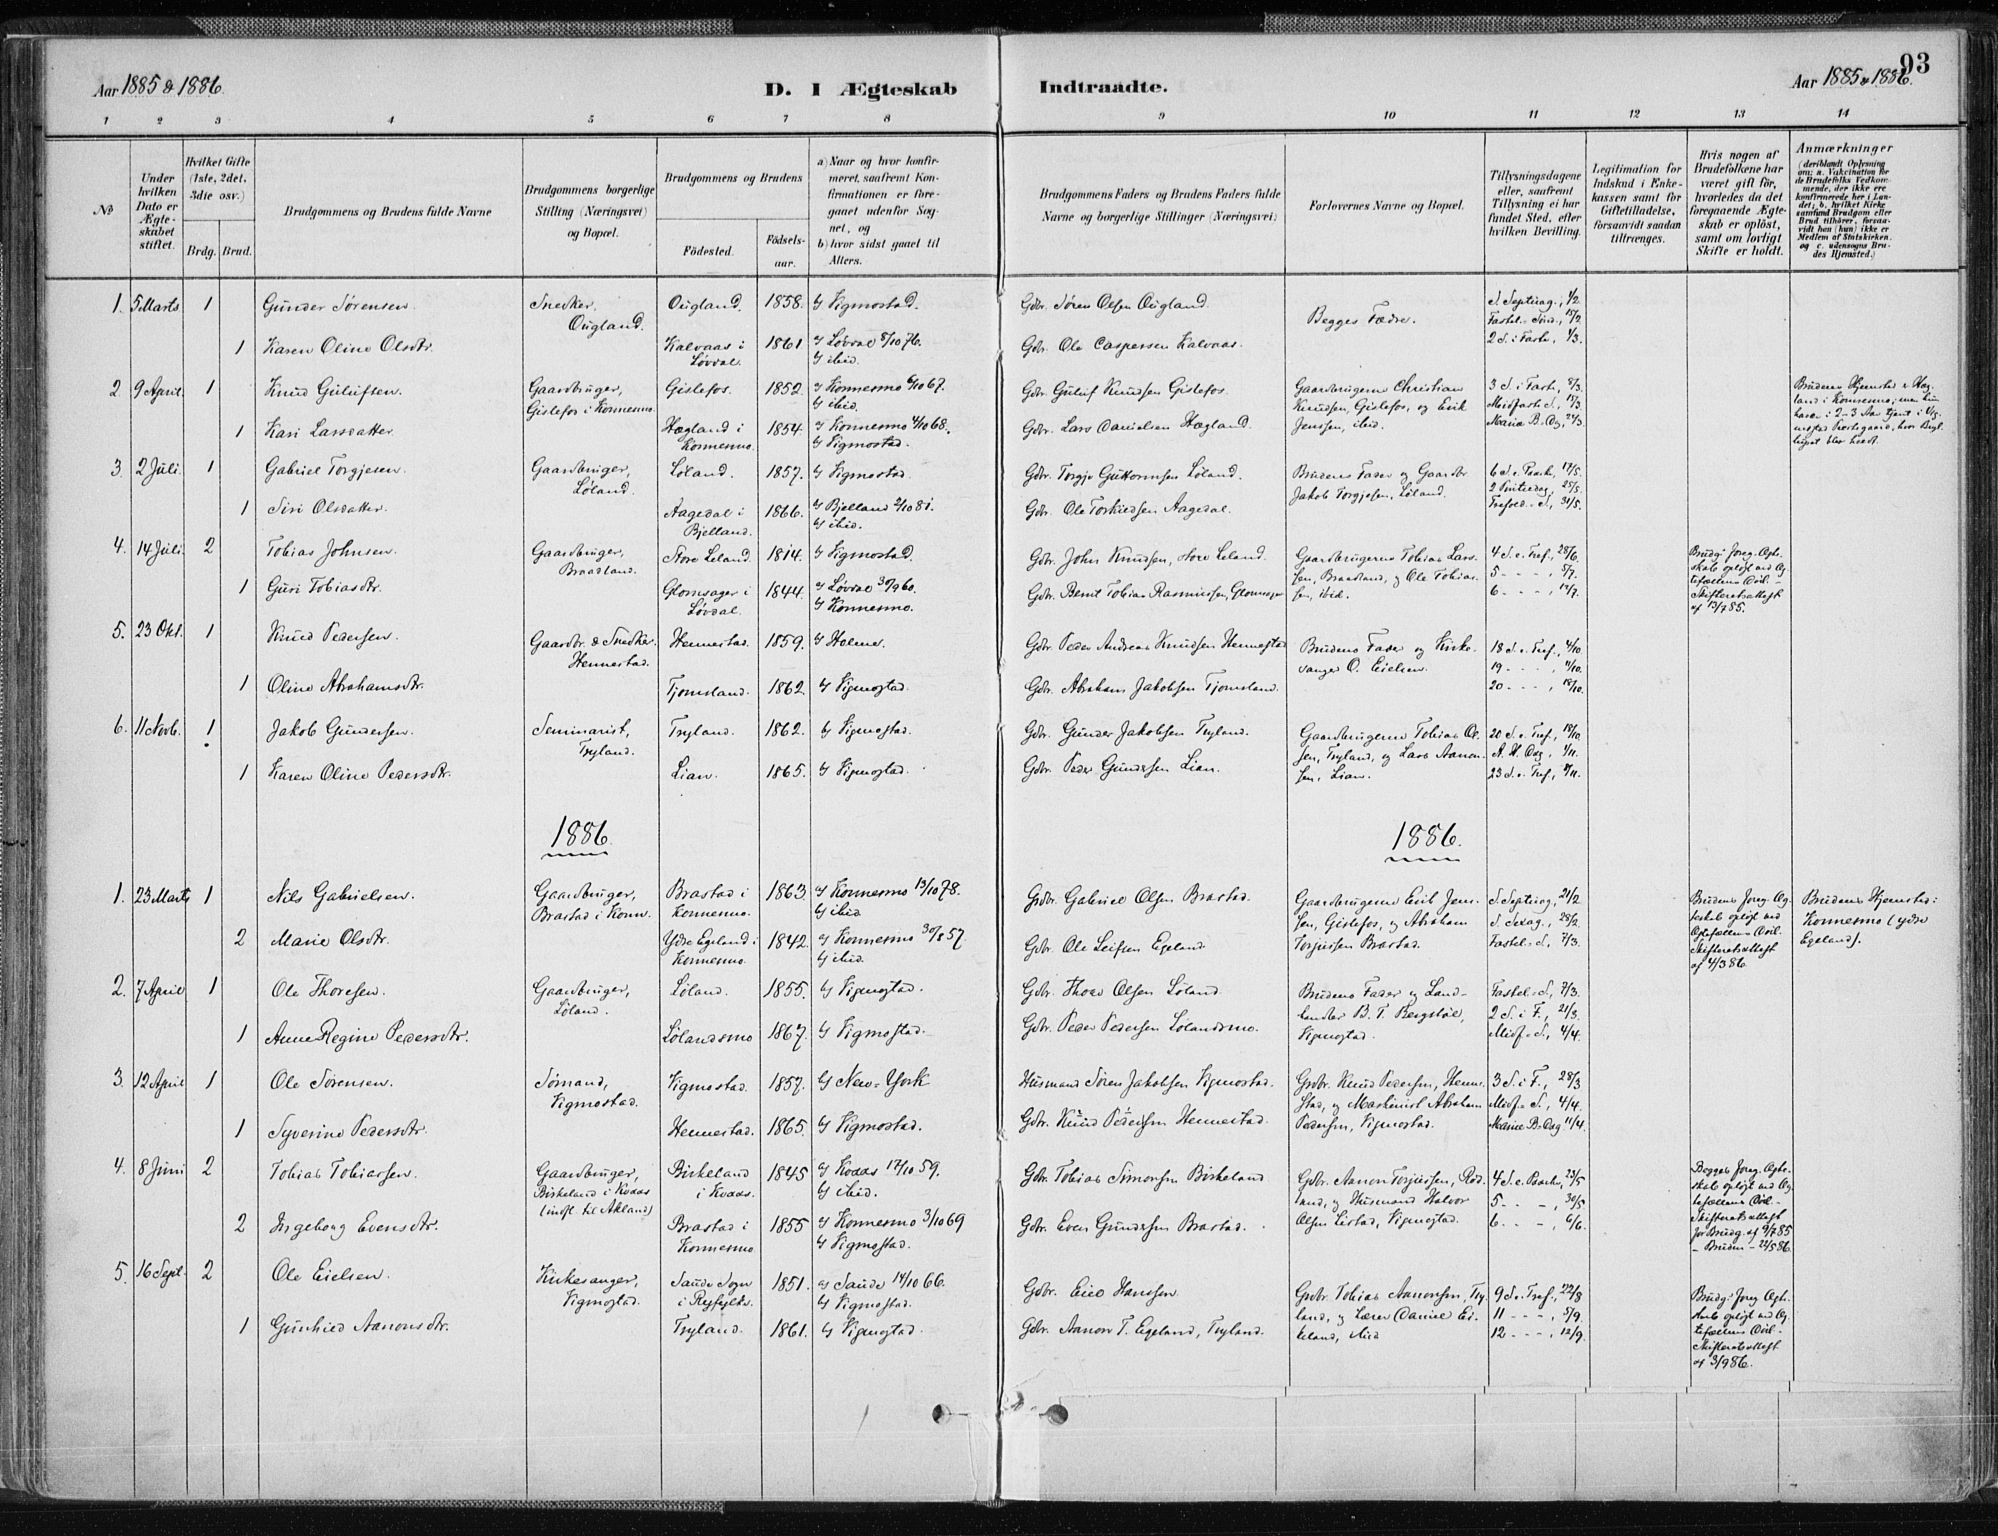 Aar 1885 & 1886.
D. I Ægteskab Indtraadte.
Aar 1885 & 1886.
93
1 2 3 4 5 6 7 8 9 10 11 12 13 14
No
Under hvilken Dato er Ægteskabet stiftet.
Hvilket Gifte (1ste, 2det, 3die osv.)
Brdg. Brud.
Brudgommens og Brudens fulde Navne
Brudgommens borgerlige Stilling (Næringsvei) og Bopæl.
Brudgommens og Brudens
Födested.
Födselsaar.
a) Naar og hvor konfirmeret, saafremt Konfirmationen er foregaaet udenfor Sognet, og
b) hvor sidst gaaet til Alters.
Brudgommens Faders og Brudens Faders fulde Navne og borgerlige Stillinger (Næringsvei)
Forlovernes Navne og Bopæl.
Tillysningsdagene eller, saafremt Tillysning ei har fundet Sted, efter hvilken Bevilling.
Legitimation for Indskud i Enkekassen samt for Giftetilladelse, forsaavidt saadan tiltrænges.
Hvis nogen af Brudefolkene har været gift før, hvorledes da det foregaaende Ægteskab er opløst, samt om lovligt Skifte er holdt.
Anmærkninger
(deriblandt Oplysning om: a. Vakcination for de Brudefolks Vedkommende, der ikke ere konfirmerede her i Landet; b. hvilket Kirkesamfund Brudgom eller Brud tilhører, forsaavidt han (hun) ikke er Medlem af Statskirken, og c. udensogns Brudes Hjemsted.)
1. 5 Marts 1 Gunder Sørensen Snedker, Ougland. Ougland. 1858. b) Vigmostad. Gdbr. Søren Olsen Ougland. Begges Fædre. S. Septuag., 1/2 Fastel. Sønd., 15/2 2 S. i Faste, 1/3.
1 Karen Oline Olsdtr. Kalvaas i Løvdal. 1861 a) Løvdal 8/10 76. b) ibid. Gdbr. Ole Caspersen Kalvaas.
2 9 April. 1 Knud Guluffsen Gaardbruger, Gislefos i Konnesmo. Gislefos. 1852. a) Konnesmo 6/10 67. b) ibid. Gdbr. Guluf Knudsen Gislefos Gaardbrugerne Christian Knudsen, Gislefos, og Erik Jenssen, ibid. 3 S. i Fast., 8/3. Midfaste S., 15/3. Mariæ B. Dag, 22/3 Brudens Hjemsted er Hægland i Konnesmo; men hun har i 2-3 Aar tjent i Vigmostad Præstegaard, hvor Bryllupet blev holdt.
1 Kari Larsdatter Hægland i Konnesmo. 1854. a) Konnesmo 4/10 68. b) Vigmostad. Gdbr. Lars Danielsen Hægland.
3. 2 Juli. 1 Gabriel Torgjesen. Gaardbruger, Løland. Løland. 1857. b) Vigmostad Gdbr. Torgje Guttormsen Løland. Brudens Fader og Gaardbr Jakob Torgjesen, Løland. 6 S. e. Paaske, 17/5. 2 Pintsedag, 25/5. Trefold. S., 31/5.
1 Siri Olsdatter. Aagedal i Bjelland. 1866. a) Bjelland 2/10 81. b) ibid. Gdbr. Ole Torkildsen Aagedal.
4. 14 Juli. 2 Tobias Johnsen. Gaardbruger, Braadland. Store Leland. 1814. b) Vigmostad. Gdbr. John Knudsen, store Leland. Gaardbrugerne Tobias Larssen, Braadland, og Ole Tobiassen, ibid. 4 S. e. Tref., 28/6. 5 - - -, 5/7. 6 - - -, 12/7. Brudg: foreg. Ægteskab opløst ved Ægtefællens Død. - Skifteretsattest af 13/7 85.
1 Guri Tobiasdtr. Glomsager i Løvdal. 1844. a) Løvdal 30/9 60. b) Konnesmo. Gdbr. Bent Tobias Rasmussen, Glomsager
5. 23 Okt. 1 Knud Pedersen. Gaardbr. & Snedker. Hennestad. Hennestad. 1859. b) Holme. Gdbr. Peder Andreas Knudsen Hennestad Brudens Fader og Kirkesanger O. Eielsen. 18 S. e. Tref., 4/10. 19 - - -, 11/10. 20 - - -, 18/10.
1 Oline Abrahamsdtr. Tjomsland. 1862. b) Vigmostad. Gdbr. Abraham Jakobsen Tjomsland.
6. 11 Novb. 1 Jakob Gundersen. Seminarist, Tryland. Tryland. 1862. b) Vigmostad. Gdbr. Gunder Jakobsen Tryland. Gaardbrugerne Tobias Olsen, Tryland, og Lars Aanonsen, Lian. 20 S. e. Tref., 18/10. A. H. Dag, 1/11. 23 S. e. Tref., 8/11.
1 Karen Oline Pedersdtr. Lian. 1865. b) Vigmostad. Gdbr. Peder Gundersen Lian.
1886. 1886.
1. 23 Marts 1 Nils Gabrielsen. Gaardbruger, Brastad i Konn. Brastad i Konnesmo. 1863. a) Konnesmo 13/10 78. b) ibid Gdbr. Gabriel Olsen Brastad. Gaardbrugerne Erik Jenssen, Gislefos, og Abraham Torjussen Brastad. S. Septuag., 21/2 S. Sexag., 28/2. Fastel. S., 7/3. Brudens foreg. Ægteskab opløst ved Ægtefællens Død. Skifteretsattest af 4/3 86. Brudens Hjemsted: Konnesmo (ydre Egeland).
2 Marie Olsdtr. Ydre Egeland i Konnesmo. 1842. a) Konnesmo 30/8 57 b) ibid. Gdbr. Ole Leifsen Egeland
2. 7 April 1 Ole Thoresen. Gaardbruger, Løland. Løland. 1855. b) Vigmostad. Gdbr. Thore Olsen Løland Brudens Fader og Landhandler B. T. Bergstøl, Vigmostad. Fastel. S., 7/3. 2 S. i F., 21/3. Midf. S., 4/4.
1 Anne Regine Pedersdtr. Lølandsmo 1867. b) Vigmostad. Gdbr. Peder Pedersen Lølandsmo.
3. 12 April 1 Ole Sørensen. Sømand, Vigmostad. Vigmostad. 1857. b) New-York Husmand Søren Jakobsen Vigmostad. Grdbr. Knud Pedersen, Hennestad, og Maskinist Abraham Pedersen, Vigmostad. 3 S. i F., 28/3 Midf. S., 4/4. Mariæ B. Dag 11/4.
1 Syverine Pedersdtr. Hennestad. 1865. b) Vigmostad. Gdbr. Knud Pedersen Hennestad
4. 8 Juni 2 Tobias Tobiassen. Gaardbruger, Birkeland i Kvaas (indfl. til Akland) Birkeland i Kvaas. 1845 a) Kvaas 17/10 59. b) ibid. Gdbr. Tobias Simonsen Birkeland Gdbr. Aanon Torjussen, Rødland, og Husmand Halvor Olsen Listad, Vigmostad. 4 S. e. Paaske, 23/5 5 - - -, 30/5. 6 - - -, 6/6. Begges foreg. Ægteskab opløst ved Ægtefællens Død. - Skifteretsattest for Brudg. af 9/7 85 - Bruden - 22/5 86.
2 Ingeborg Evensdtr. Brastad i Konnesmo 1855 a) Konnesmo 3/10 69 b) Vigmostad. Gdbr. Even Gundersen Brastad.
5. 16 Sept. 2 Ole Eielsen. Kirkesanger, Vigmostad. Saude Sogn i Ryfylke. 1851. a) Saude 14/10 66. b) Vigmostad. Gdbr. Eiel Hanssen. Grdbr. Tobias Aanonsen, Tryland, og Lærer Daniel Eikeland, ibid 9 S. e. Tref., 22/8 11 - - -, 5/9. 12 - - -, 12/9. Brudg: foreg. Ægteskab opløst ved Ægtefællens Død. - Skifteretsattest af 3/9 86.
1 Gunhild Aanonsdtr. Tryland. 1861. b) Vigmostad. Gdbr. Aanon T. Egeland, Tryland.